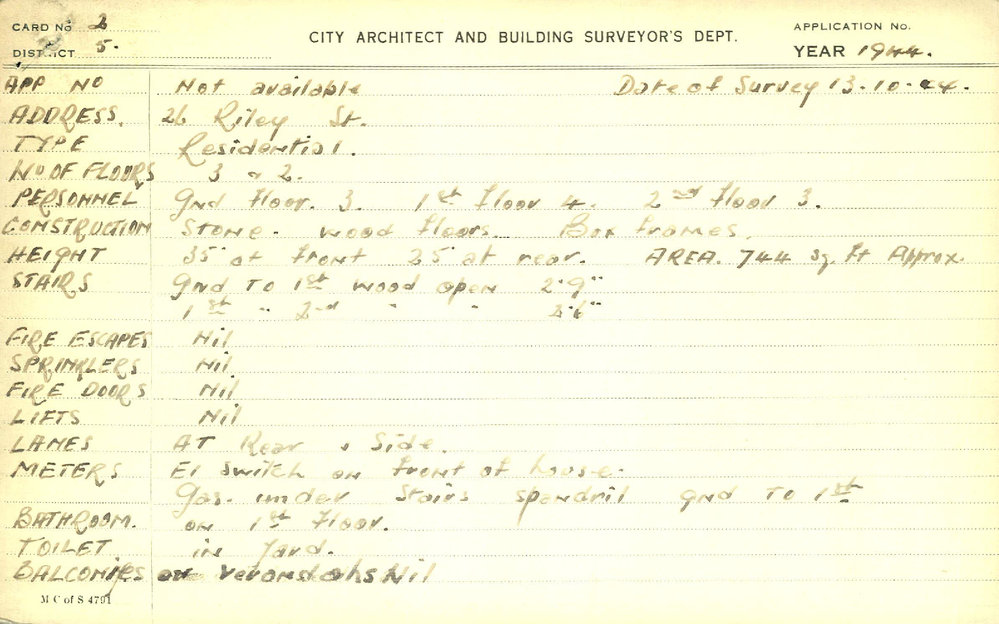 CARD No 2
DISTRICT 5.
CITY ARCHITECT AND BUILDING SURVEYOR'S DEPT.
APPLICATION No.
YEAR 1944.
APP NO Not available Date of Survey 13.10.44.
ADDRESS. 26 Riley St.
TYPE Residential.
NO OF FLOORS 3 & 2.
PERSONNEL Gnd floor. 3. 1st floor 4. 2nd floor 3.
CONSTRUCTION Stone. wood floors. Box frames.
HEIGHT 35' at front 25' at rear. AREA. 744 sq. ft Approx.
STAIRS Gnd TO 1st wood open 2'9"
1st " 2nd " " 2'6"
FIRE ESCAPES Nil
SPRINKLERS Nil
FIRE DOORS Nil
LIFTS Nil
LANES AT Rear & Side.
METERS El switch on front of house.
Gas. under stairs spandril gnd TO 1st
BATHROOM. on 1st floor.
TOILET in Yard.
BALCONIES or verandahs Nil
M C of S 4791